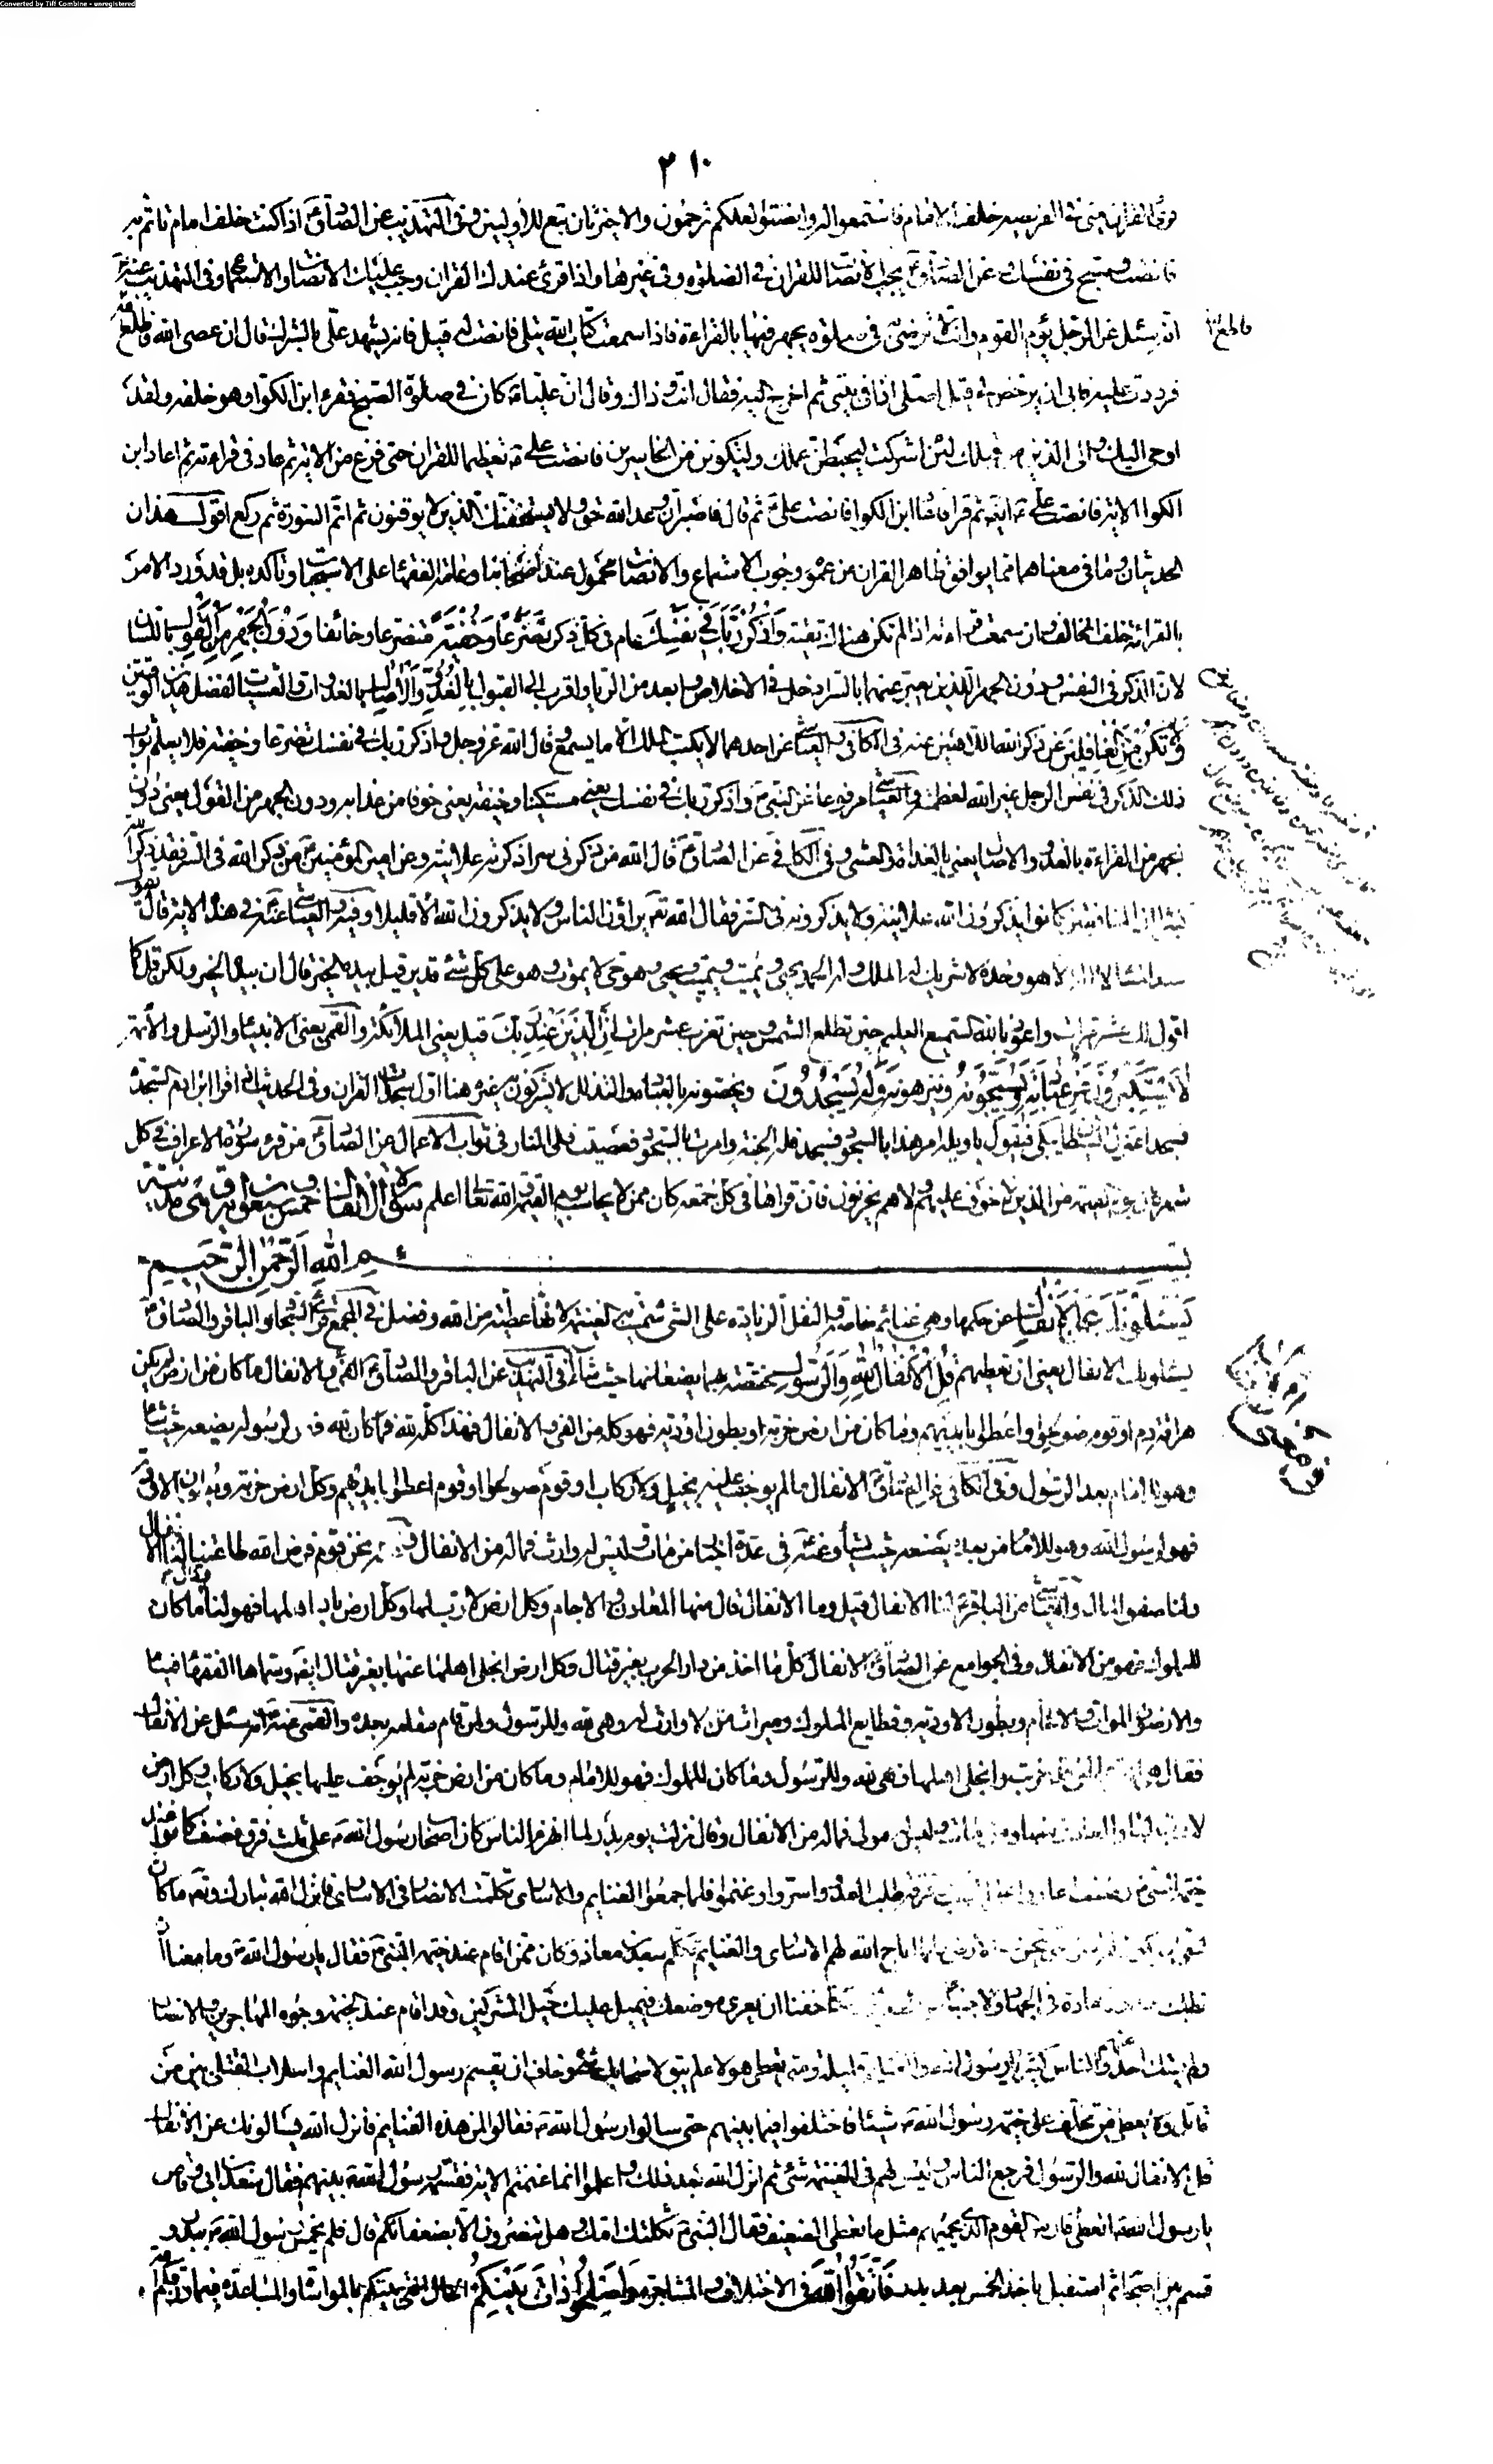 Converted by Tiff Combine - unregistered
٢١٠
قرئ القران يعني في الفريضة خلف الامام فاستمعوا له وانصتوا لعلكم ترحمون والاخريان تبع للاوليين وفي التهذيب عن الصادق ع اذا كنت خلف امام تأتم به
فانصت وسبح في نفسك عن الصادق ع يجب الانصات للقران في الصلوة وفي غيرها واذا قرئ عندك القران وجب عليك الانصات والاستماع وفي التهذيب عنه ع
انه سئل عن الرجل يؤم القوم وانت لا ترضى به في صلوة يجهر فيها بالقراءة فقال اذا سمعت كتاب الله يتلى فانصت له قيل فانه يشهد علي بالشرك قال ان عصى الله فاطع الله
فرددت عليه فابى ان يرخص لي قيل اصلي اذا في بيتي ثم اخرج اليه فقال انت وذاك وقال ان عليا ع كان في صلوة الصبح فقرء ابن الكوا وهو خلفه ولقد
اوحى اليك والى الذين من قبلك لئن اشركت ليحبطن عملك ولتكونن من الخاسرين فانصت علي ع تعظيما للقران حتى فرغ من الاية ثم عاد في قراءته ثم اعاد ابن
الكوا الاية فانصت علي ع ايضا ثم قرا فاعاد ابن الكوا فانصت علي ع ثم قال فاصبر ان وعد الله حق ولا يستخفنك الذين لا يوقنون ثم اتم السورة ثم ركع اقول هذان
الحديثان وما في معناهما مما يوافق ظاهر القران من عموم وجوب الاستماع والانصات محمول عند اصحابنا وعامة الفقهاء على الاستحباب وتاكده بل قد ورد الامر
بالقراءة خلف المخالف وان سمعت قراءته اذا لم تكن هناك تقية واذكر ربك في نفسك عام في كل ذكر تضرعا وخيفة متضرعا وخائفا ودون الجهر من القول باللسان
لان الذكر في النفس ودون الجهر اللذين يعبر عنهما بالسر ادخل في الاخلاص وابعد من الريا واقرب الى القبول بالغدو والاصال بالغدوات والعشيات لفضل هذين الوقتين
ولا تكن من الغافلين عن ذكر الله اللاهين عنه في الكافي والعياشي عن احدهما لا يكتب الملك الا ما يسمع وقال الله عز وجل واذكر ربك في نفسك تضرعا وخيفة فلا يعلم ثواب
ذلك الذكر في نفس الرجل غير الله لعظمته والعياشي مرفوعا عن النبي ص واذكر ربك في نفسك يعني مستكينا وخيفة يعني خوفا من عذابه ودون الجهر من القول يعني دون
الجهر من القراءة بالغدو والاصال يعني بالغداة والعشي وفي الكافي عن الصادق ع قال الله من ذكرني سرا ذكرته علانية وعن امير المؤمنين ع من ذكر الله في السر فقد ذكر الله
كثيرا ان المنافقين كانوا يذكرون الله علانية ولا يذكرونه في السر فقال الله تعالى يراؤن الناس ولا يذكرون الله الا قليلا وفيه والعياشي عنه ع في هذه الاية قال تقول
عند المسا لا اله الا هو وحده لا شريك له له الملك وله الحمد يحيى ويميت ويميت ويحيى وهو حي لا يموت وهو على كل شئ قدير قيل بيده الخير قال ان بيده الخير ولكن قل كما
اقول لك عشر مرات واعوذ بالله السميع العليم حين تطلع الشمس وحين تغرب عشر مرات ان الذين عند ربك قيل يعني الملائكة والقمي يعني الانبياء والرسل والائمة
لا يستكبرون عن عبادته ويسبحونه وينزهونه وله يسجدون ويخصونه بالعبادة والتذلل لا يشركون به غيره هنا اول سجدات القران وفي الحديث اذا قرا ابن ادم السجدة
فسجد اعتزل الشيطان يبكي فيقول يا ويله امر هذا بالسجود فسجد فله الجنة وامرت بالسجود فعصيت فلي النار في ثواب الاعمال عن الصادق ع من قرء سورة الاعراف في كل
شهر كان يوم القيمة من الذين لا خوف عليهم ولا هم يحزنون فان قراها في كل جمعة كان ممن لا يحاسب يوم القيمة والله تعالى اعلم سورة الانفال خمس وسبعون اية وهي مدنية
بسم الله الرحمن الرحيم
يسئلونك عن الانفال عن حكمها وهي غنائم خاصة والنفل الزيادة على الشئ سميت به الغنيمة لانها عطية من الله وفضل في المجمع قرء السجاد والباقر والصادق ع
يسئلونك الانفال يعني ان تعطيهم قل الانفال لله والرسول مختصة بهما يضعانها حيث شاء في التهذيب عن الباقر والصادق ع الفئ والانفال ما كان من ارض لم يكن
هراقة دم او قوم صولحوا واعطوا بايديهم وما كان من ارض خربة او بطون اودية فهو كله من الفئ والانفال فهذا كله لله فما كان لله فهو لرسوله يضعه حيث شاء
وهو للامام بعد الرسول وفي الكافي عن الصادق ع الانفال ما لم يوجف عليه بخيل ولا ركاب او قوم صولحوا او قوم اعطوا بايديهم وكل ارض خربة وبطون الاودية
فهو لرسول الله وهو للامام من بعده يضعه حيث يشاء وعنه ع في عدة اخبار من مات وليس له وارث فماله من الانفال وعنه نحن قوم فرض الله طاعتنا لنا الانفال
ولنا صفو المال والعياشي عن الباقر ع لنا الانفال قيل وما الانفال قال منها المعادن والاجام وكل ارض لا رب لها وكل ارض باد اهلها فهو لنا وقال ما كان
للملوك فهو من الانفال وفي الجوامع عن الصادق ع الانفال كل ما اخذ من دار الحرب بغير قتال وكل ارض انجلى اهلها عنها بغير قتال ايضا وسماها الفقهاء فيئا
والارضون الموات والاجام وبطون الاودية وقطايع الملوك وميراث من لا وارث له وهي لله وللرسول ولمن قام مقامه بعده والقمي عنه ع انه سئل عن الانفال
فقال هي القرى التي قد خربت وانجلى اهلها فهي لله وللرسول وما كان للملوك فهو للامام وما كان من ارض خربة لم يوجف عليها بخيل ولا ركاب وكل ارض
لا رب لها والمعادن منها ومن مات وليس له مولى فماله من الانفال وقال نزلت يوم بدر لما انهزم الناس كان اصحاب رسول الله ص على ثلث فرق فصنف كانوا عند
خيمة النبي ص وصنف اغاروا على النهب وفرقة طلبت العدو واسروا وغنموا فلما جمعوا الغنايم والاسارى تكلمت الانصار في الاسارى فانزل الله تبارك وتعالى ما كان
لنبي ان يكون له اسرى حتى يثخن في الارض فلما اباح الله لهم الاسارى والغنايم تكلم سعد بن معاذ وكان ممن اقام عند خيمة النبي ص فقال يا رسول الله ص وما معنا ان
نطلب العدو زهادة في الجهاد ولا جبنا خفنا ان يعرى موضعك فيميل عليك خيل المشركين وقد اقام عند الخيمة وجوه المهاجرين والانصار
ولم يشك احد منهم والناس كثير يا رسول الله والغنائم قليلة ومتى تعطى هؤلاء لم يبق لاصحابك شئ وخاف ان يقسم رسول الله الغنايم واسلاب القتلى بين من
قاتل ولا يعطي من تخلف على خيمة رسول الله ص شيئا فاختلفوا فيما بينهم حتى سالوا رسول الله ص فقالوا لمن هذه الغنايم فانزل الله يسالونك عن الانفال
قل الانفال لله والرسول فرجع الناس وليس لهم في الغنيمة شئ ثم انزل الله بعد ذلك واعلموا انما غنمتم الاية فقسمه رسول الله ص بينهم فقال سعد بن ابي وقاص
يا رسول الله ص اتعطي فارس القوم الذي يحميهم مثل ما تعطي الضعيف فقال النبي ص ثكلتك امك وهل تنصرون الا بضعفائكم قال فلم يخمس رسول الله ص ببدر و
قسم بين اصحابه ثم استقبل ياخذ الخمس بعد بدر فاتقوا الله في الاختلاف والمشاجرة واصلحوا ذات بينكم الحال التي بينكم بالمواساة والمساعدة فيما رزقكم الله